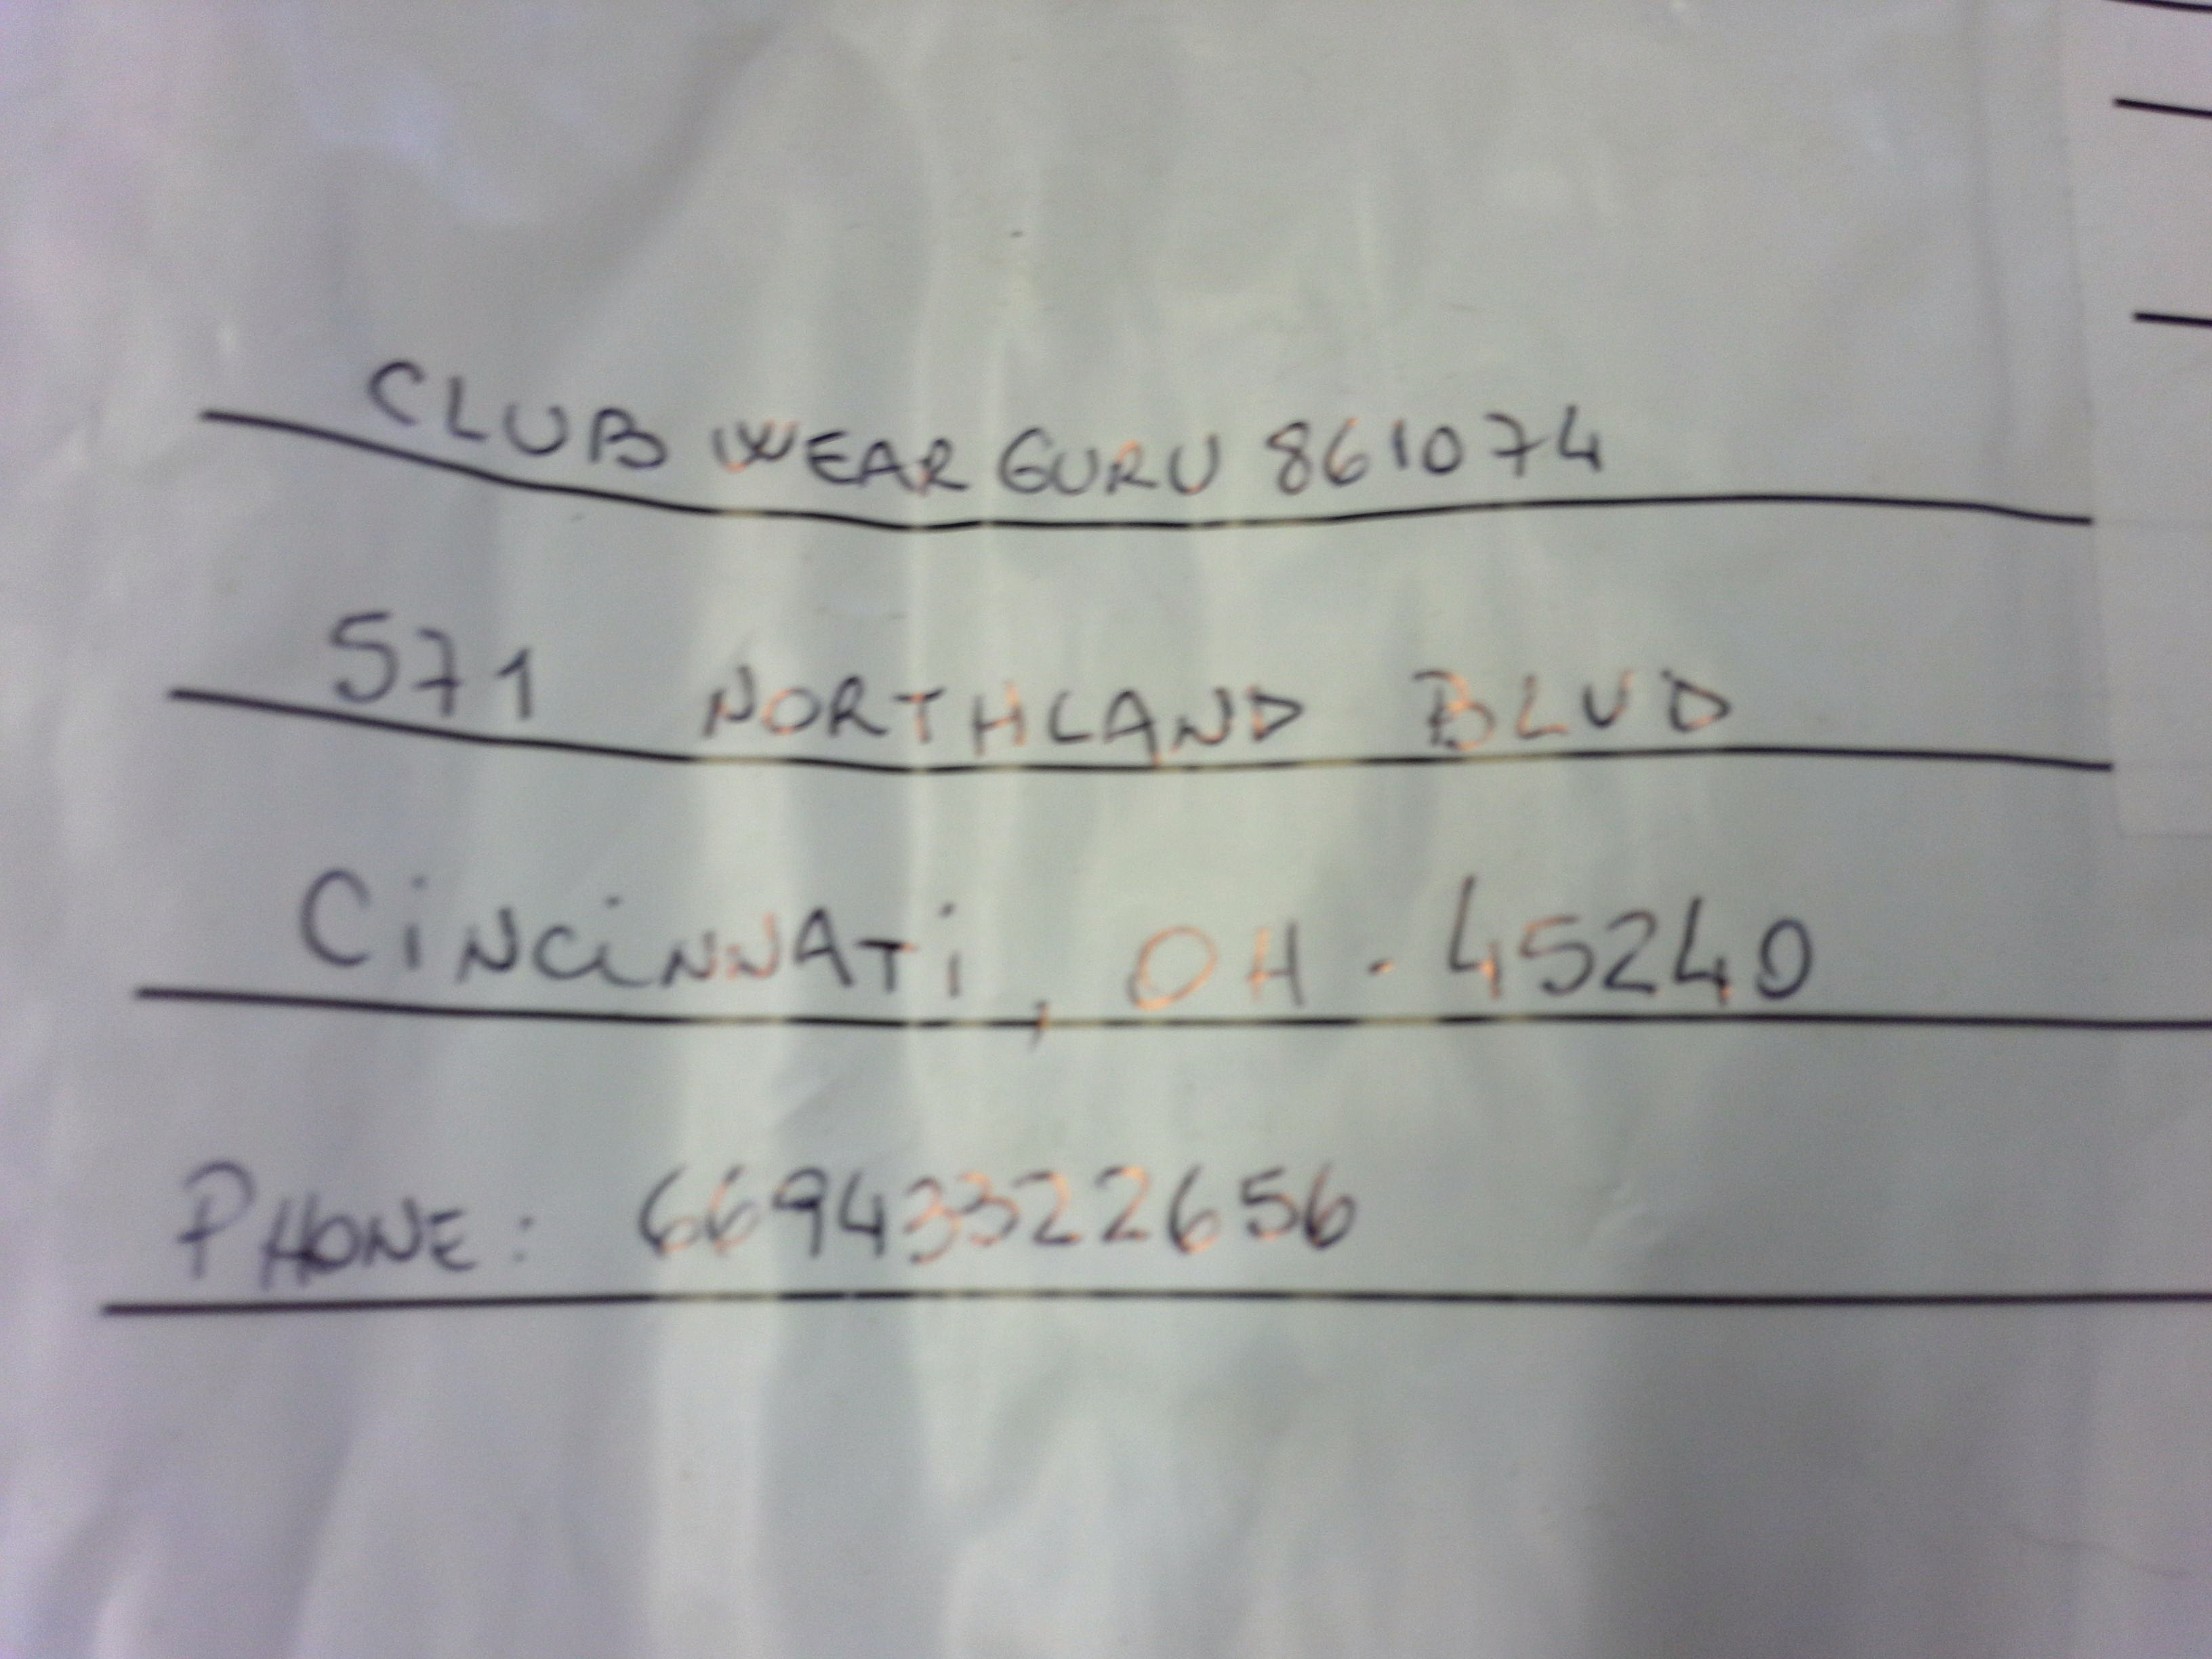 CLUB WEAR GURU 861074
571 NORTHLAND BLVD
CiNCiNNATi, OH - 45240
PHONE: 66943322656